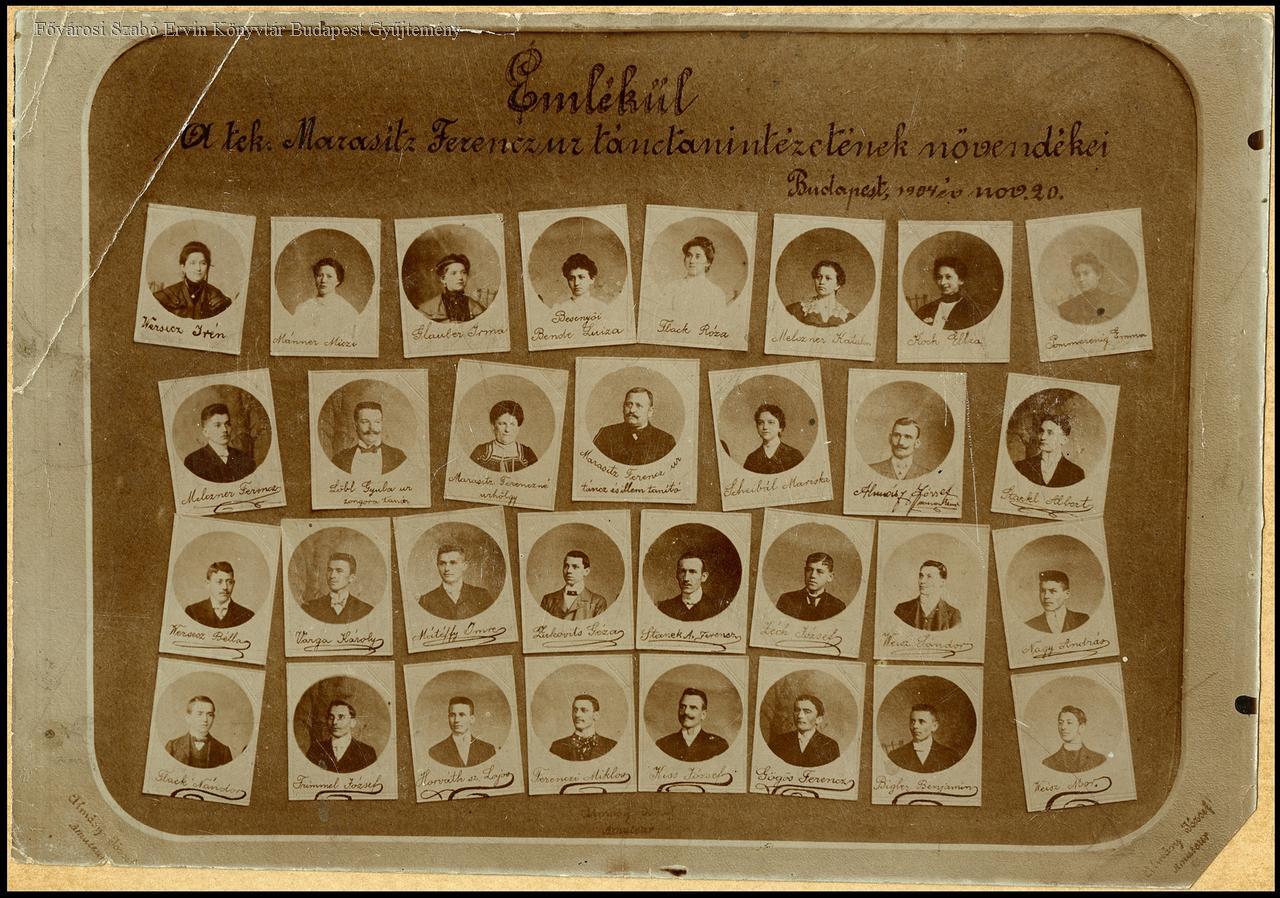 Fővárosi Szabó Ervin Könyvtár Budapest Gyűjtemény
Emlékül
A tek. Marasitz Ferencz ur tánctanintézetének növendékei
Budapest, 1904 év nov. 20.
Wersecz Irén
Männer Miczi
Glauber Irma
Besenyői
Bende Luiza
Flack Róza
Melczner Katalin
Koch Ellza
Pommerenig Emma
Melczner Ferencz
Löbl Gyula ur
zongora tanár
Marasitz Ferenczné
urhölgy
Marasitz Ferencz ur
táncz és illem tanitó
Scheibál Mariska
Almásy József
Starkl Albert
Wersecz Béla
Varga Karoly
Mátéffy Imre
Zukovits Géza
Stanek A. Ferencz
Zéch József
Weisz Sándor
Nagy András
Flack Nándor
Trimmel József
Horváth sz. Lajos
Ferenczi Miklós
Kiss József
Gőgös Ferencz
Bigler Benjamin
Weisz Mór
Almásy József
Amateur
Almásy József
Amateur